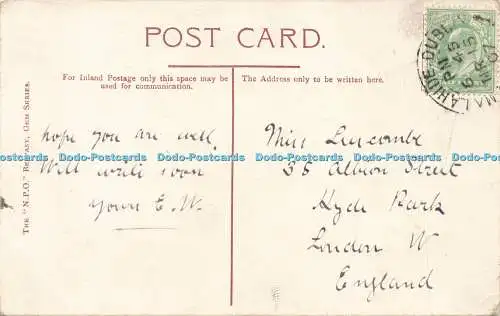 POST CARD.
For Inland Postage only this space may be
used for communication.
The Address only to be written here.
MALAHIDE DUBLIN
THE "N.P.O." BELFAST, GEM SERIES.
hope you are well.
Will write soon
Yours E.W.
Miss Luscombe
35 Albion Street
Hyde Park
London W
England
Dodo-Postcards Dodo-Postcards Dodo-Postcards Dodo-Postcards Dodo-Postcards